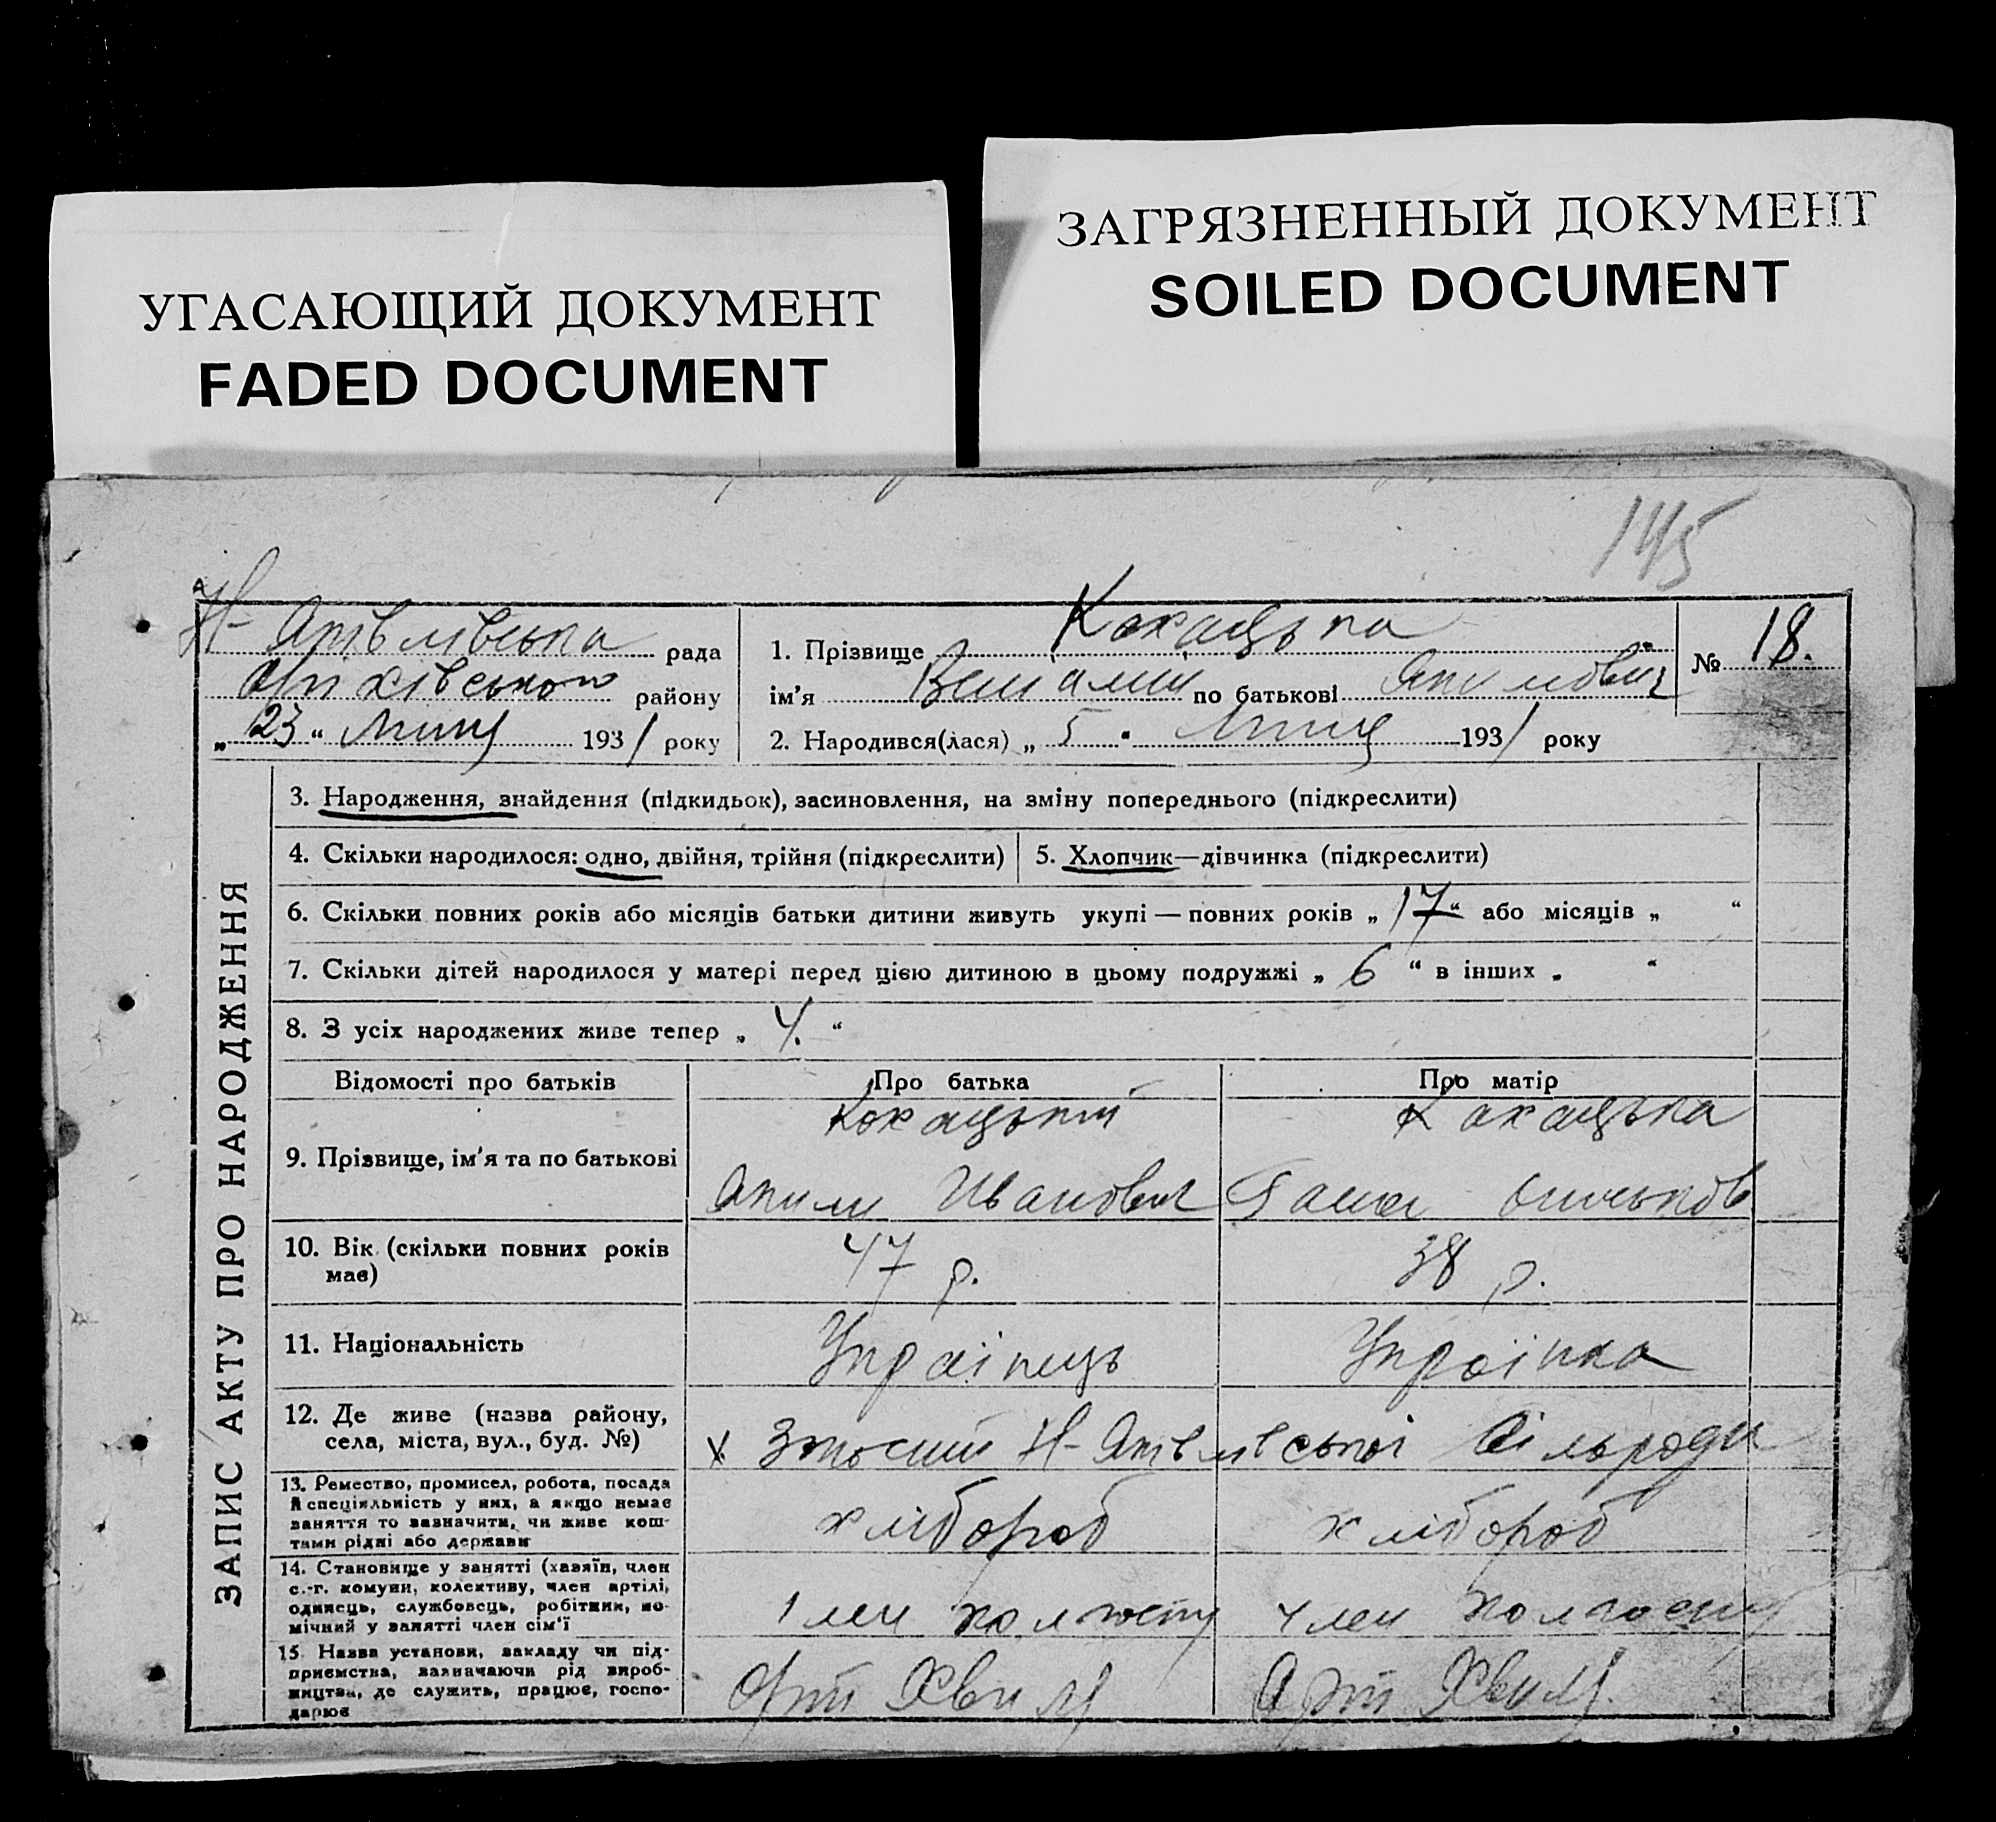 УГАСАЮЩИЙ ДОКУМЕНТ
FADED DOCUMENT
ЗАГРЯЗНЕННЫЙ ДОКУМЕНТ
SOILED DOCUMENT
145
рада
району
„ 23 “ Липця 1931 року
1. Прізвище Кохацька
ім'я Веніамин по батькові Якимович
2. Народився(лася) „ 5 “ Липця 1931 року
№ 18.
ЗАПИС АКТУ ПРО НАРОДЖЕННЯ
3. Народження, знайдення (підкидьок), засиновлення, на зміну попереднього (підкреслити)
4. Скільки народилося: одно, двійня, трійня (підкреслити)
5. Хлопчик—дівчинка (підкреслити)
6. Скільки повних років або місяців батьки дитини живуть укупі — повних років „ 17 “ або місяців „ “
7. Скільки дітей народилося у матері перед цією дитиною в цьому подружжі „ 6 “ в інших „ “
8. З усіх народжених живе тепер „ 4. “
Відомості про батьків Про батька Про матір
9. Прізвище, ім'я та по батькові
Кохацький
Аким Иванович
Кохацька
Ганна
10. Вік (скільки повних років має)
47 р. 38 р.
11. Національність
Українець Українка
12. Де живе (назва району, села, міста, вул., буд. №)
х Сільради
13. Ремество, промисел, робота, посада й спеціяльність у них, а якщо немає заняття то зазначити, чи живе коштами рідні або держави
хлібороб хлібороб
14. Становище у занятті (хазяїн, член с.-г. комуни, колективу, член артілі, одинець, службовець, робітник, помічний у занятті член сім'ї
член колгоспу член колгоспу
15. Назва установи, закладу чи підприємства, зазначаючи рід виробництва, де служить, працює, господарює
Арт Арт